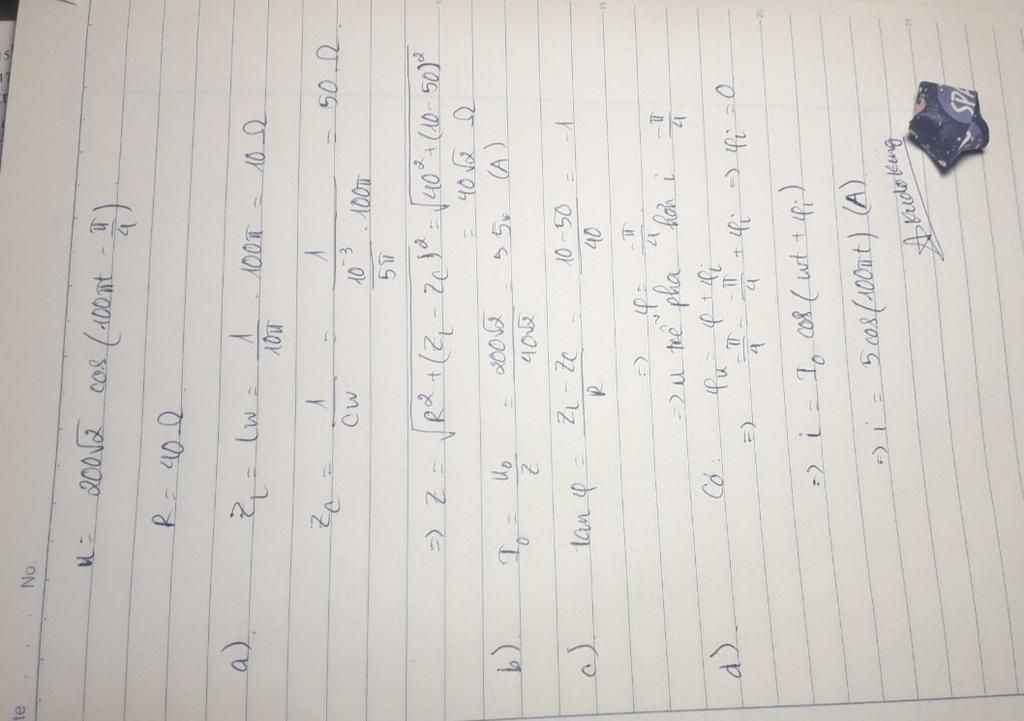 No.
te
u = 200√2 cos (100πt - π/4)
R = 40 Ω
a) Z_L = Lω = 1/10π . 100π = 10 Ω
Z_C = 1/Cω = 1/(10⁻³/5π . 100π) = 50 Ω
=> Z = √(R² + (Z_L - Z_C)²) = √(40² + (10 - 50)²)
= 40√2 Ω
b) I₀ = U₀/Z = 200√2/40√2 = 5 (A)
c) tan φ = (Z_L - Z_C)/R = (10 - 50)/40 = -1
=> φ = -π/4
=> u trễ pha hơn i -π/4
d) Có: φu = φ + φi
=> -π/4 = -π/4 + φi => φi = 0
=> i = I₀ cos (ωt + φi)
=> i = 5 cos (100πt) (A)
SPA
15
20
25